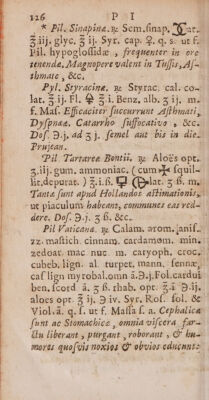 126 P I
* Pil. Sinapinæ. ℞ Sem. sinap.
ʒ iij. glyc. ʒ ij. Syr. cap. ♀. q. s. ut f.
Pil. hypoglossidæ, frequenter in ore
tenendæ. Magnopere valent in Tussis, As-
thmate, &c.
Pyl. Styracinæ. ℞ Styrac. cal. co-
lat. ʒ ij. Fl. 🜍 ʒ i. Benz. alb. ʒ ij. m.
f. Mas. Efficaciter succurrunt Asthmati,
Dyspnææ. Catarrho suffocativo, &c.
Dos. ℈.j. ad ʒ j. semel aut bis in die.
Prujean.
Pil Tartareæ Bontii. ℞ Aloës opt.
ʒ.iij. gum. ammoniac. (cum squil-
lit.depurat.) ʒ.i.ß. lat. ʒ ß. m.
Tantæ sunt apud Hollandos æstimationis,
ut piaculum habeant, communes eas red-
dere. Dos. ℈.j. ʒ ß. &c.
Pil Vaticana. ℞ Calam. arom. anis.
zz. mastich. cinnam. cardamom. min.
zedoar. mac nuc. m. caryoph. croc.
cubeb. lign. al. turpet. mann. sennæ,
caf lign myrobal. omn ā.℈.j. Fol. cardui
ben. scord ā. ʒ ß. rhab. opt. ʒ.i ℈.ij.
aloes opt. ʒ ij. ℈ iv. Syr. Ros. sol. &
Viol. ā. q. s. ut f. Massa s. a. Cephalica
sunt ac Stomachicæ, omnia viscera far-
ctu liberant, purgant, roborant, & hu-
mores quosvis noxios & obvios educunt: